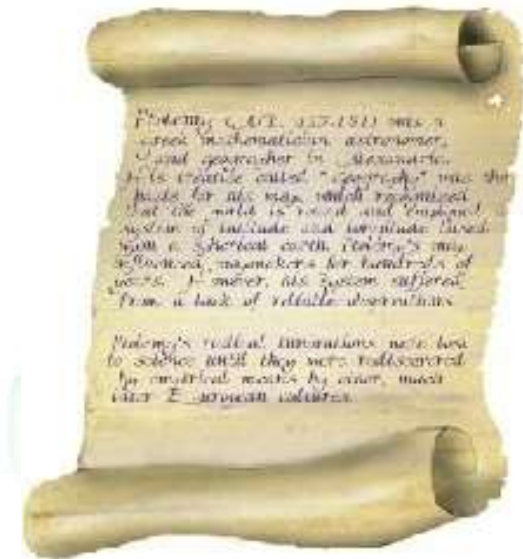 Ptolemy was a
Greek mathematician, astronomer,
and geographer in Alexandria.
His treatise called "Geography" was the
basis for his map, which recognized
that the world is round and employed
system of latitude and longitude based
upon a spherical earth. Ptolemy's map
influenced mapmakers for hundreds of
years. However, his system suffered
from a lack of reliable observations

Ptolemy's radical innovations were lost
to science until they were rediscovered
by empirical means by other, much
later European cultures.